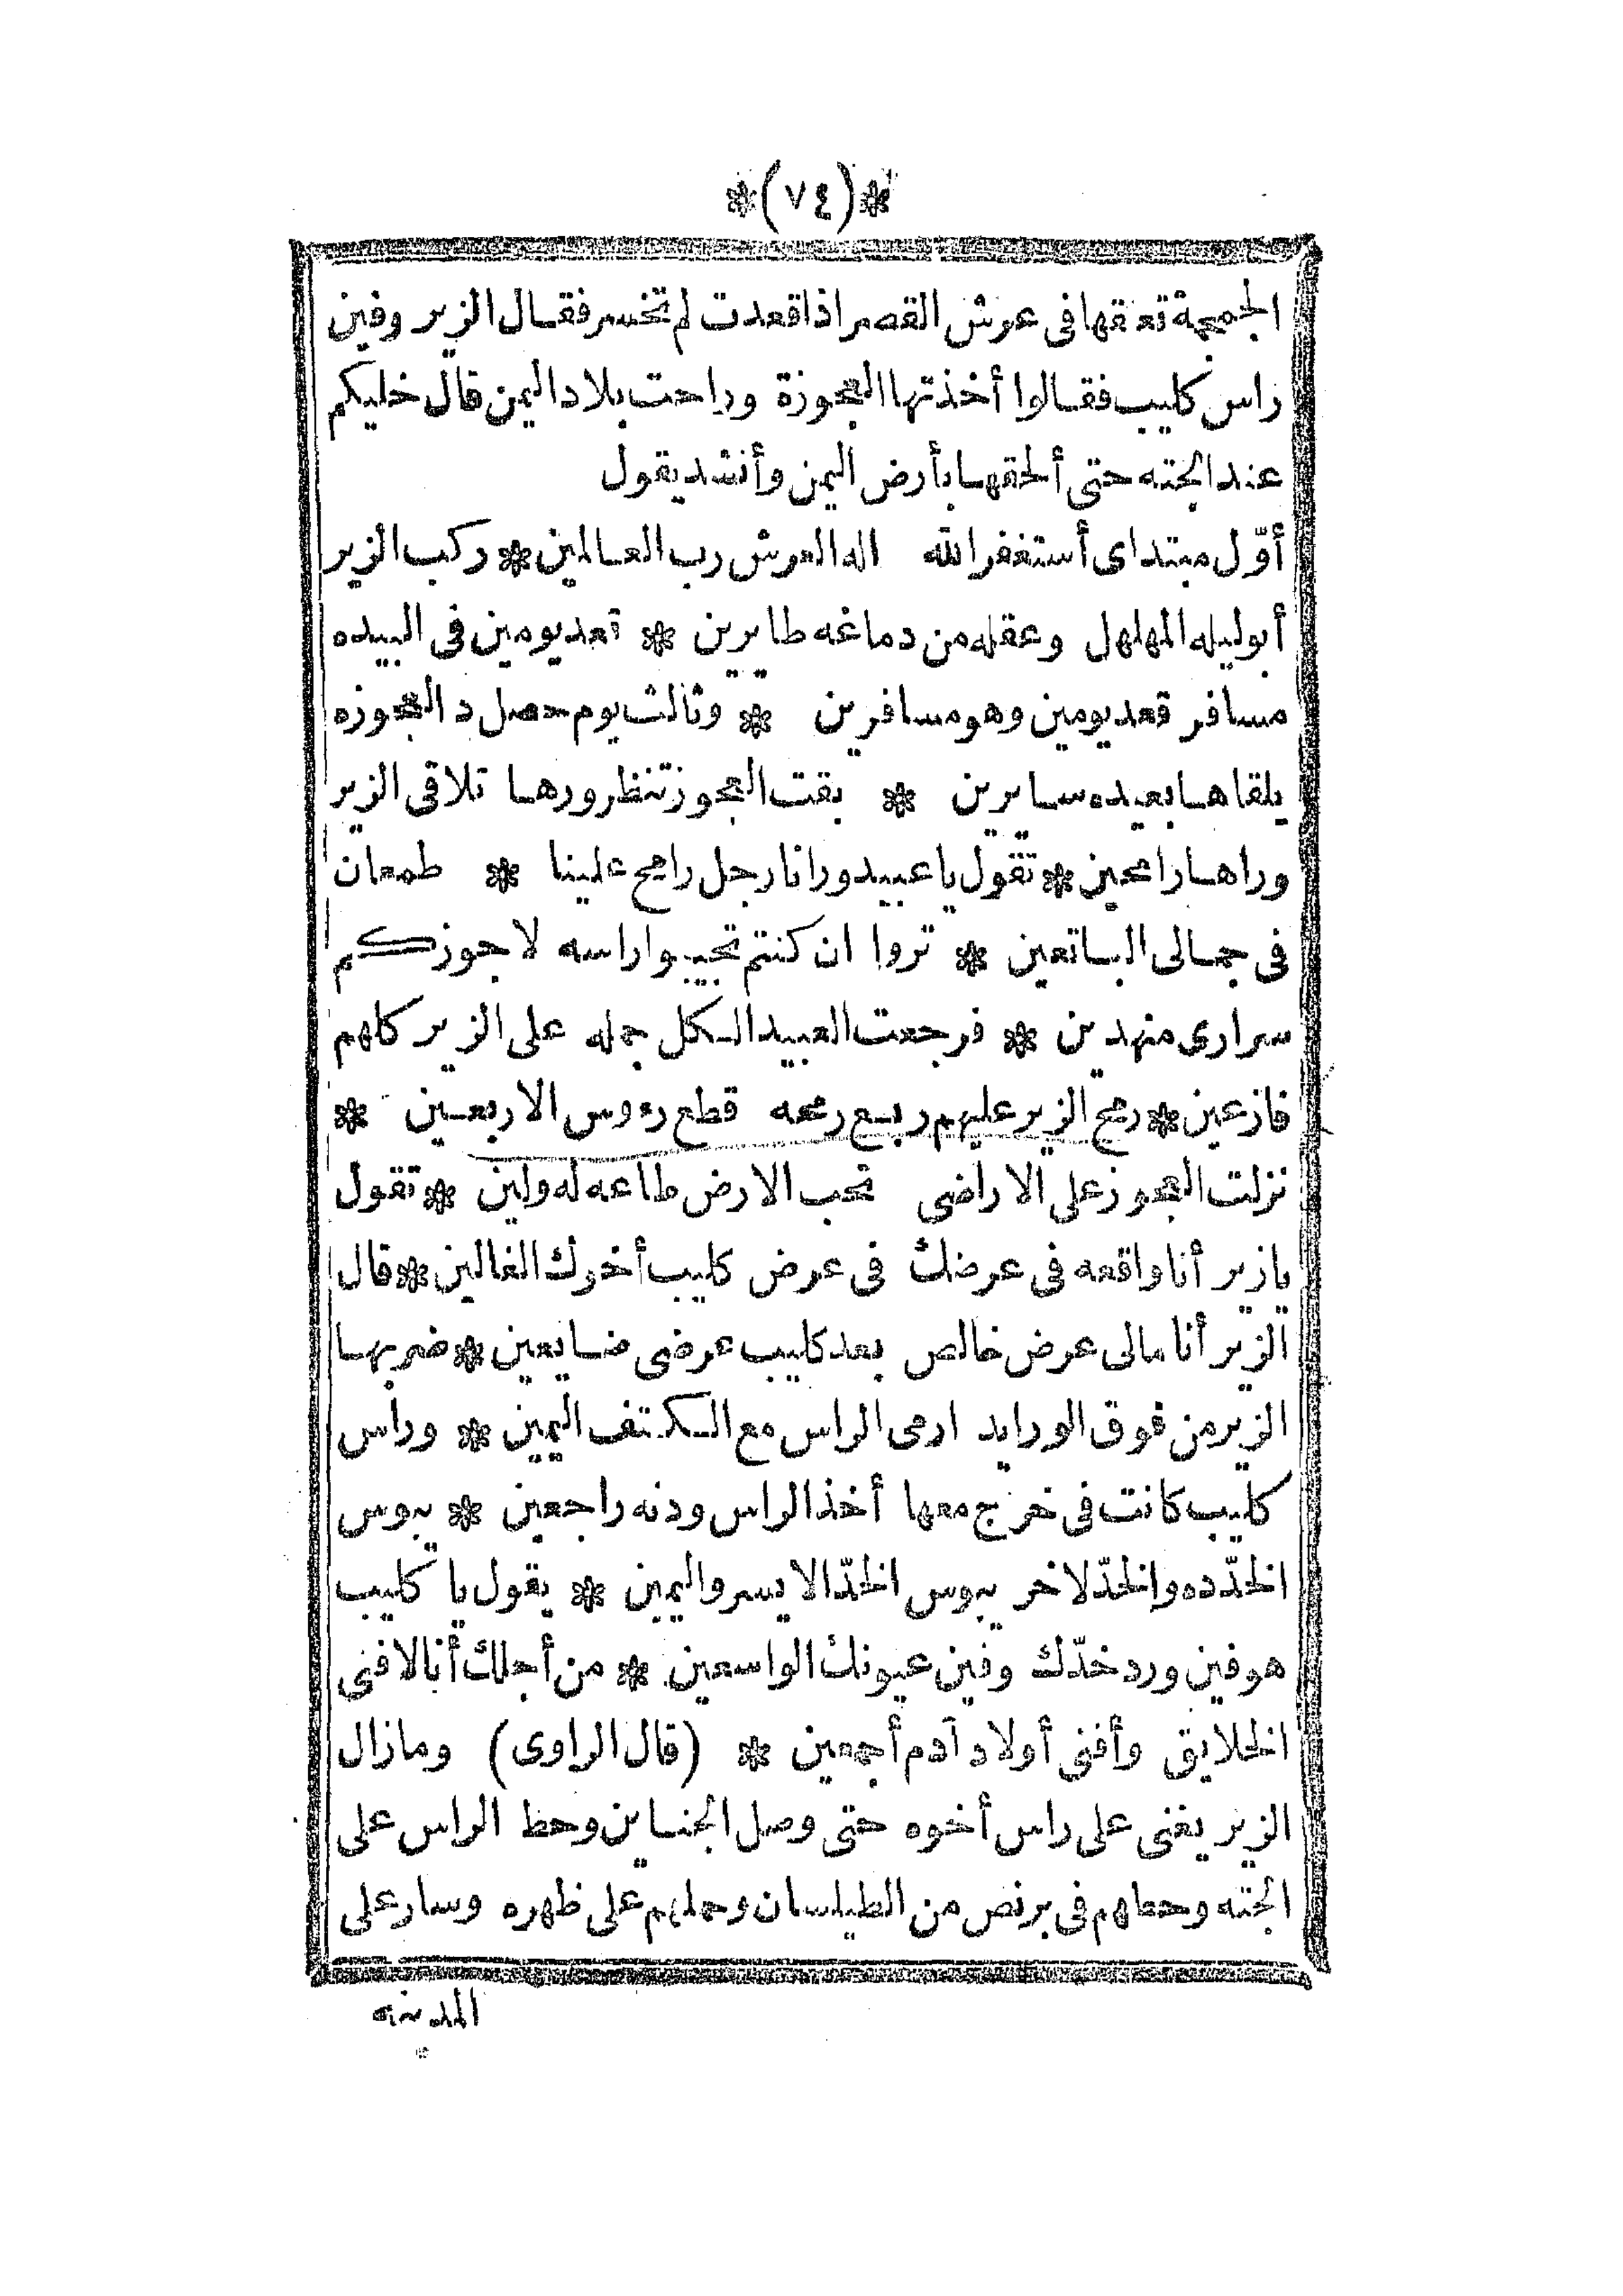 *(٧٤)*
الجمجمة تعقها فى عرش القصر اذا قعدت لم تخسر فقال الزير وفين
راس كليب فقالوا أخذتها العجوزة وراحت بلاد اليمن قال خليكم
عند الجته حتى ألحقها بأرض اليمن وأنشد يقول
أوّل مبتداى أستغفر الله اله العرش رب العالمين * ركب الزير
أبوليله المهلهل وعقله من دماغه طايرين * تعد يومين فى البيده
مسافر قعد يومين وهو مسافرين * وثالث يوم حصل د العجوزه
يلقاها بعيده سايرين * بقت العجوز تنظر ورها تلاقى الزير
وراها رامحين * تقول يا عبيد ورانا رجل رامح علينا * طمعان
فى جمالى الباتعين * تروا ان كنتم تجيبوا راسه لاجوزكم
سرارى منهدين * فرجعت العبيد الكل جمله على الزير كلهم
فازعين * رمح الزير عليهم ربع رمحه قطع رءوس الاربعين *
نزلت العجوز على الاراضى تحب الارض طاعه له ولين * تقول
يازير أنا واقعه فى عرضك فى عرض كليب أخوك الغالين * قال
الزير أنا مالى عرض خالص بعد كليب عرضى ضايعين * ضربها
الزير من فوق الورايد ارمى الراس مع الكتف اليمين * وراس
كليب كانت فى خرج معها أخذ الراس ودنه راجعين * يبوس
الخدّ ده والخدّ لاخر يبوس الخدّ الايسر واليمين * يقول يا كليب
هو فين ورد خدّك وفين عيونك الواسعين * من أجلك أنا لافنى
الخلايق وأفنى أولاد آدم أجمعين * (قال الراوى) ومازال
الزير يغنى على راس أخوه حتى وصل الجناين وحط الراس على
الجته وحطهم فى برنص من الطيلسان وحملهم على ظهره وسار على
المدينه